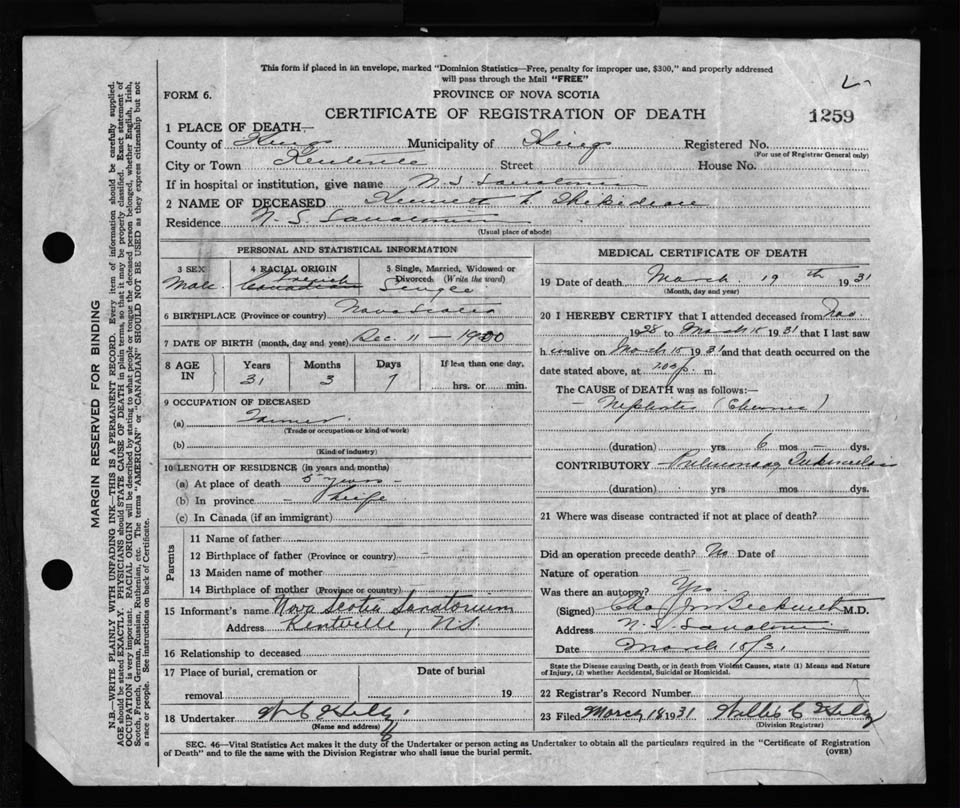 This form if placed in an envelope, marked "Dominion Statistics—Free, penalty for improper use, $300," and properly addressed
will pass through the Mail "FREE"
FORM 6.
PROVINCE OF NOVA SCOTIA
CERTIFICATE OF REGISTRATION OF DEATH
1259
1 PLACE OF DEATH—
County of Kings Municipality of Kings Registered No.
(For use of Registrar General only)
City or Town Kentville Street House No.
If in hospital or institution, give name N. S. Sanatorium
2 NAME OF DECEASED Kenneth
Residence N. S. Sanatorium
(Usual place of abode)
PERSONAL AND STATISTICAL INFORMATION
3 SEX 4 RACIAL ORIGIN 5 Single, Married, Widowed or
Divorced. (Write the word)
Male Canadian Single
6 BIRTHPLACE (Province or country) Nova Scotia
7 DATE OF BIRTH (month, day and year) Dec. 11 — 1900
8 AGE IN Years Months Days If less than one day,
31 3 7 hrs. or min.
9 OCCUPATION OF DECEASED
(a) Farmer
(Trade or occupation or kind of work)
(b)
(Kind of industry)
10 LENGTH OF RESIDENCE (in years and months)
(a) At place of death 5 years —
(b) In province — life
(c) In Canada (if an immigrant)
Parents
11 Name of father
12 Birthplace of father (Province or country) —
13 Maiden name of mother
14 Birthplace of mother (Province or country)
15 Informant's name Nova Scotia Sanatorium
Address Kentville, N.S.
16 Relationship to deceased
17 Place of burial, cremation or Date of burial
removal 19
18 Undertaker
(Name and address)
MEDICAL CERTIFICATE OF DEATH
19 Date of death March 19th 1931
(Month, day and year)
20 I HEREBY CERTIFY that I attended deceased from Nov.
1928 to March 18 1931 that I last saw
h im alive on March 18 1931 and that death occurred on the
date stated above, at m.
The CAUSE of DEATH was as follows:—
— Nephritis (Chronic)
(duration) yrs 6 mos — dys.
CONTRIBUTORY Pulmonary Tuberculosis
(duration) yrs. mos. dys.
21 Where was disease contracted if not at place of death?
Did an operation precede death? No Date of
Nature of operation
Was there an autopsy? Yes
(Signed) Beckwith M.D.
Address N. S. Sanatorium
Date March 18/31
State the Disease causing Death, or in death from Violent Causes, state (1) Means and Nature
of Injury, (2) whether Accidental, Suicidal or Homicidal.
22 Registrar's Record Number
23 Filed March 18 1931
(Division Registrar)
SEC. 46—Vital Statistics Act makes it the duty of the Undertaker or person acting as Undertaker to obtain all the particulars required in the "Certificate of Registration
of Death" and to file the same with the Division Registrar who shall issue the burial permit. (OVER)
MARGIN RESERVED FOR BINDING
N.B.—WRITE PLAINLY WITH UNFADING INK—THIS IS A PERMANENT RECORD. Every item of information should be carefully supplied.
AGE should be stated EXACTLY. PHYSICIANS should STATE CAUSE OF DEATH in plain terms, so that it may be properly classified. Exact statement of
OCCUPATION is very important. RACIAL ORIGIN will be described by stating to what people or tongue the deceased person belonged, whether English, Irish,
Scotch, French, German, Russian, Ruthenian, etc. The terms "AMERICAN" or "CANADIAN" SHOULD NOT BE USED as they express citizenship but not
a race or people. See instructions on back of Certificate.